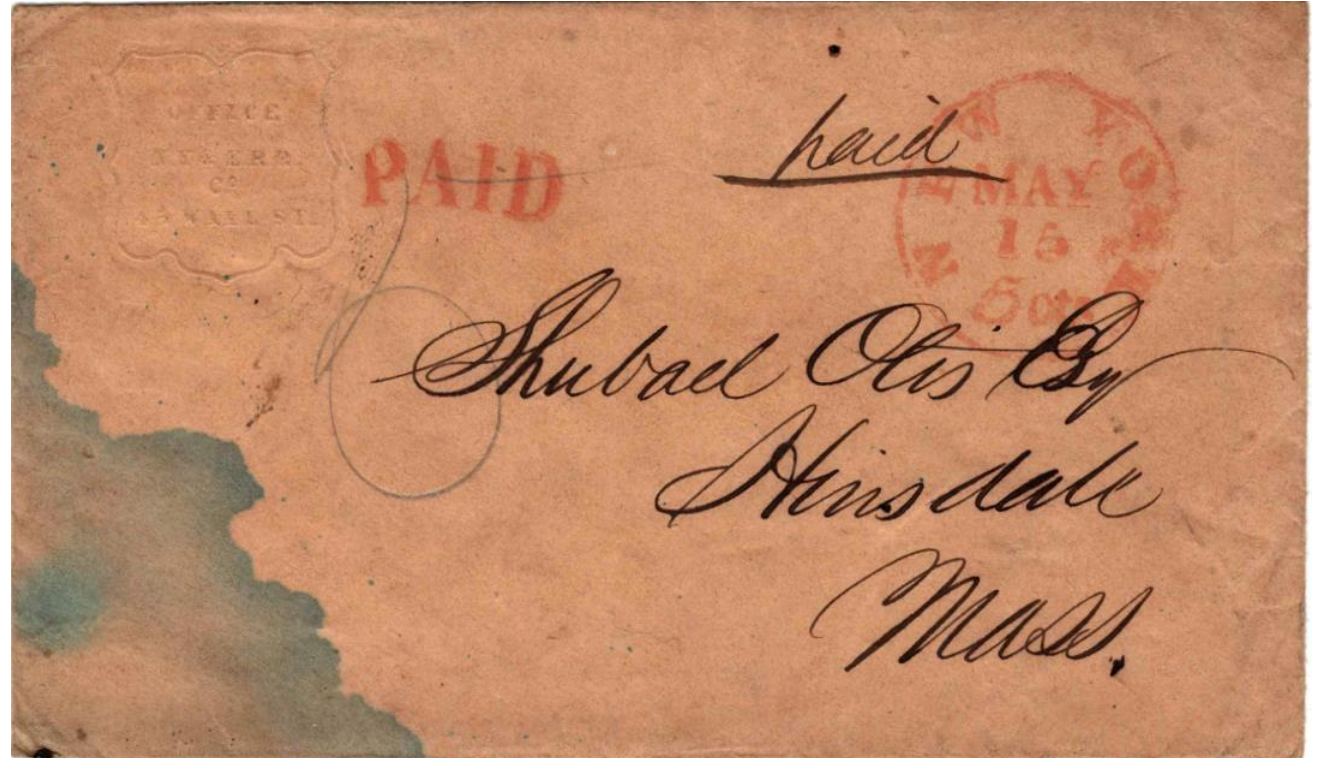 OFFICE
Co
WALL ST.
PAID
paid
NEW YORK
MAY
15
5 cts
Shubael Otis Esq
Hinsdale
Mass.